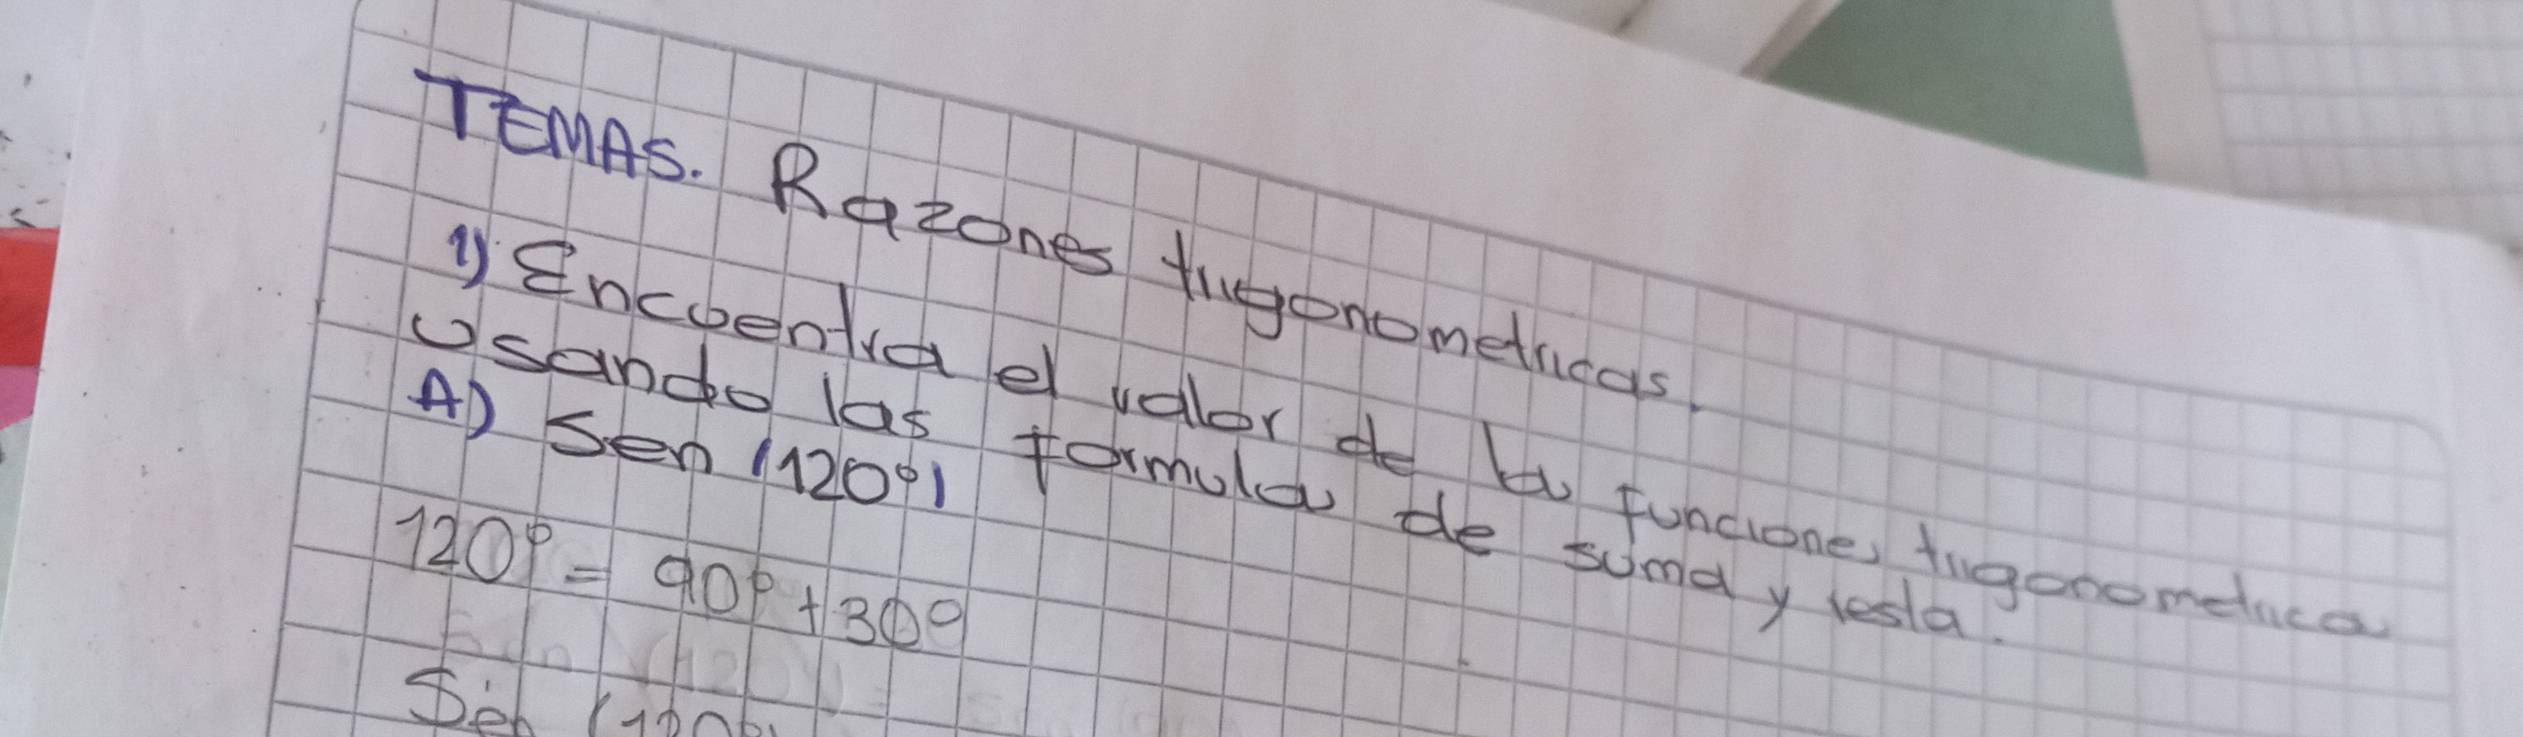 TEMAS. Razones trigonometricas.
1) Encuentra el valor de la funciones trigonometrica
usando las formula de suma y resta.
A) Sen (120°)
120° = 90° + 30°
Sen (120°)